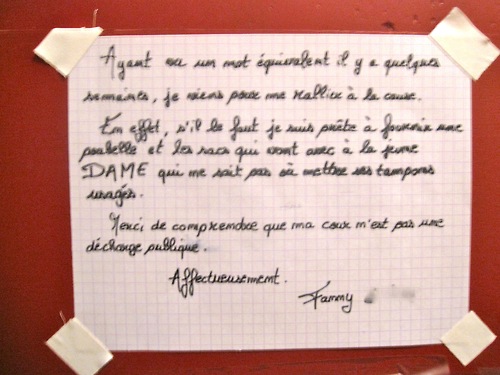 Ayant vu un mot équivalent il y a quelques
semaines, je viens pour me rallier à la cause.
En effet, s'il le faut je suis prête à fournir une
poubelle et les sacs qui vont avec à la jeune
DAME qui ne sait pas où mettre ses tampons
usagés.
Merci de comprendre que ma cour n'est pas une
décharge publique.
Affectueusement.
Fanny